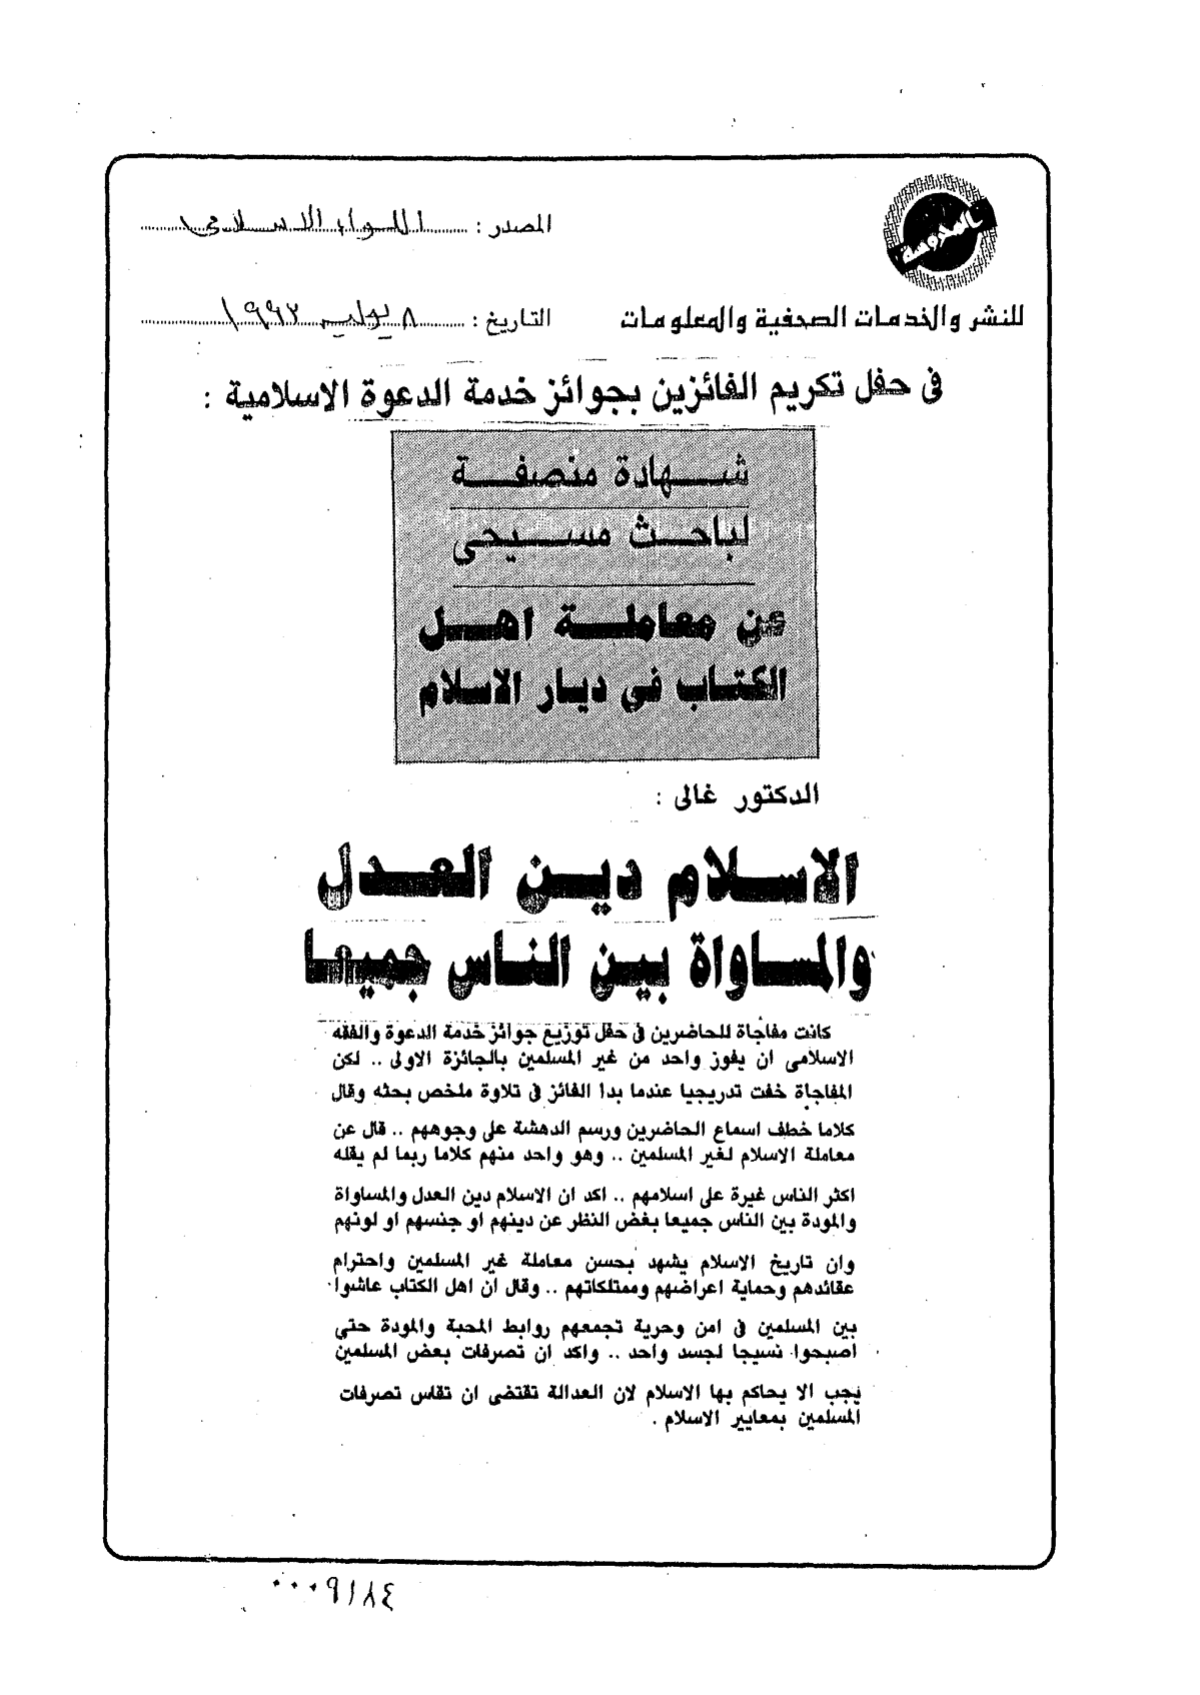 بالمدرسة
المصدر : اللواء الاسلامى
للنشر والخدمات الصحفية والمعلومات
التاريخ : ٨ يوليو ١٩٩٣
فى حفل تكريم الفائزين بجوائز خدمة الدعوة الاسلامية :
شهادة منصفة
لباحث مسيحى
عن معاملة اهل
الكتاب فى ديار الاسلام
الدكتور غالى :
الاسلام دين العدل
والمساواة بين الناس جميعا
كانت مفاجاة للحاضرين فى حفل توزيع جوائز خدمة الدعوة والفقه
الاسلامى ان يفوز واحد من غير المسلمين بالجائزة الاولى .. لكن
المفاجاة خفت تدريجيا عندما بدا الفائز فى تلاوة ملخص بحثه وقال
كلاما خطف اسماع الحاضرين ورسم الدهشة على وجوههم .. قال عن
معاملة الاسلام لغير المسلمين .. وهو واحد منهم كلاما ربما لم يقله
اكثر الناس غيرة على اسلامهم .. اكد ان الاسلام دين العدل والمساواة
والمودة بين الناس جميعا بغض النظر عن دينهم او جنسهم او لونهم
وان تاريخ الاسلام يشهد بحسن معاملة غير المسلمين واحترام
عقائدهم وحماية اعراضهم وممتلكاتهم .. وقال ان اهل الكتاب عاشوا
بين المسلمين فى امن وحرية تجمعهم روابط المحبة والمودة حتى
اصبحوا نسيجا لجسد واحد .. واكد ان تصرفات بعض المسلمين
يجب الا يحاكم بها الاسلام لان العدالة تقتضى ان تقاس تصرفات
المسلمين بمعايير الاسلام .
٠٠٠٩١٨٤